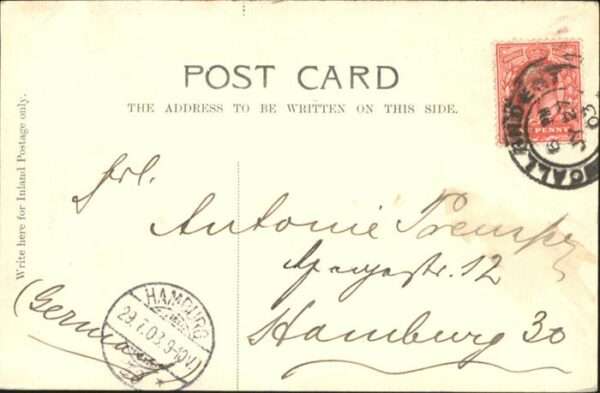 POST CARD
THE ADDRESS TO BE WRITTEN ON THIS SIDE.
Write here for Inland Postage only.
PENNY
CALLANDER
JY 27
03
Frl.
Antonie
12
Hamburg 30
(Germany)
HAMBURG
29.7.03.9-10V.